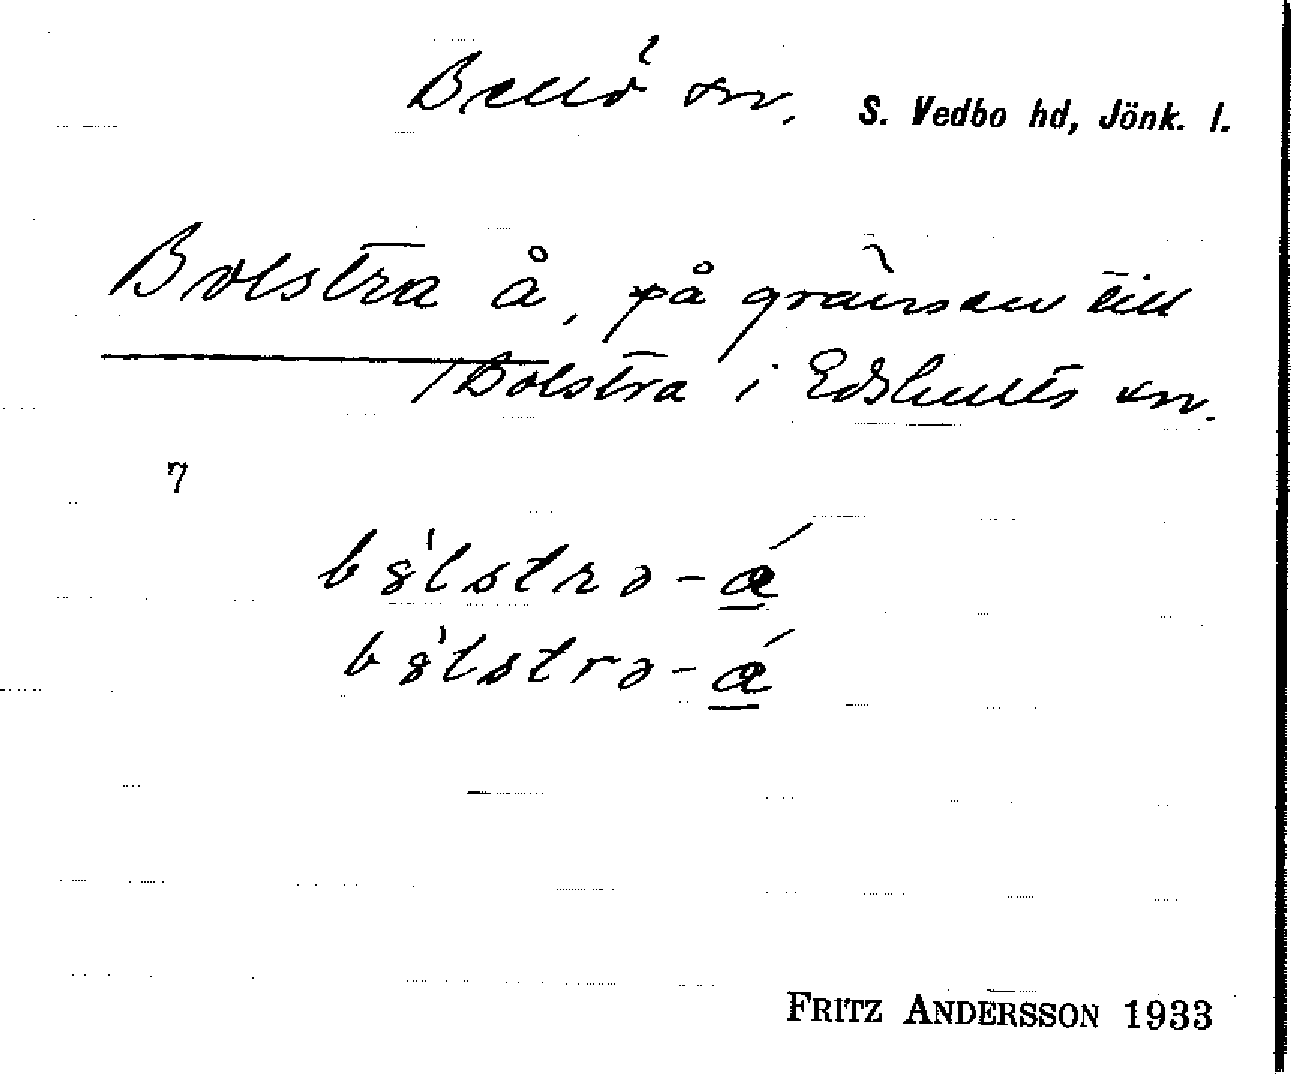 Bellö sn. S. Vedbo hd, Jönk. l.
Bolstra å, på gränsen till
Bolstra i Edshults sn.
7
b8̀lstrə-á
b8̀lstrə-á
FRITZ ANDERSSON 1933